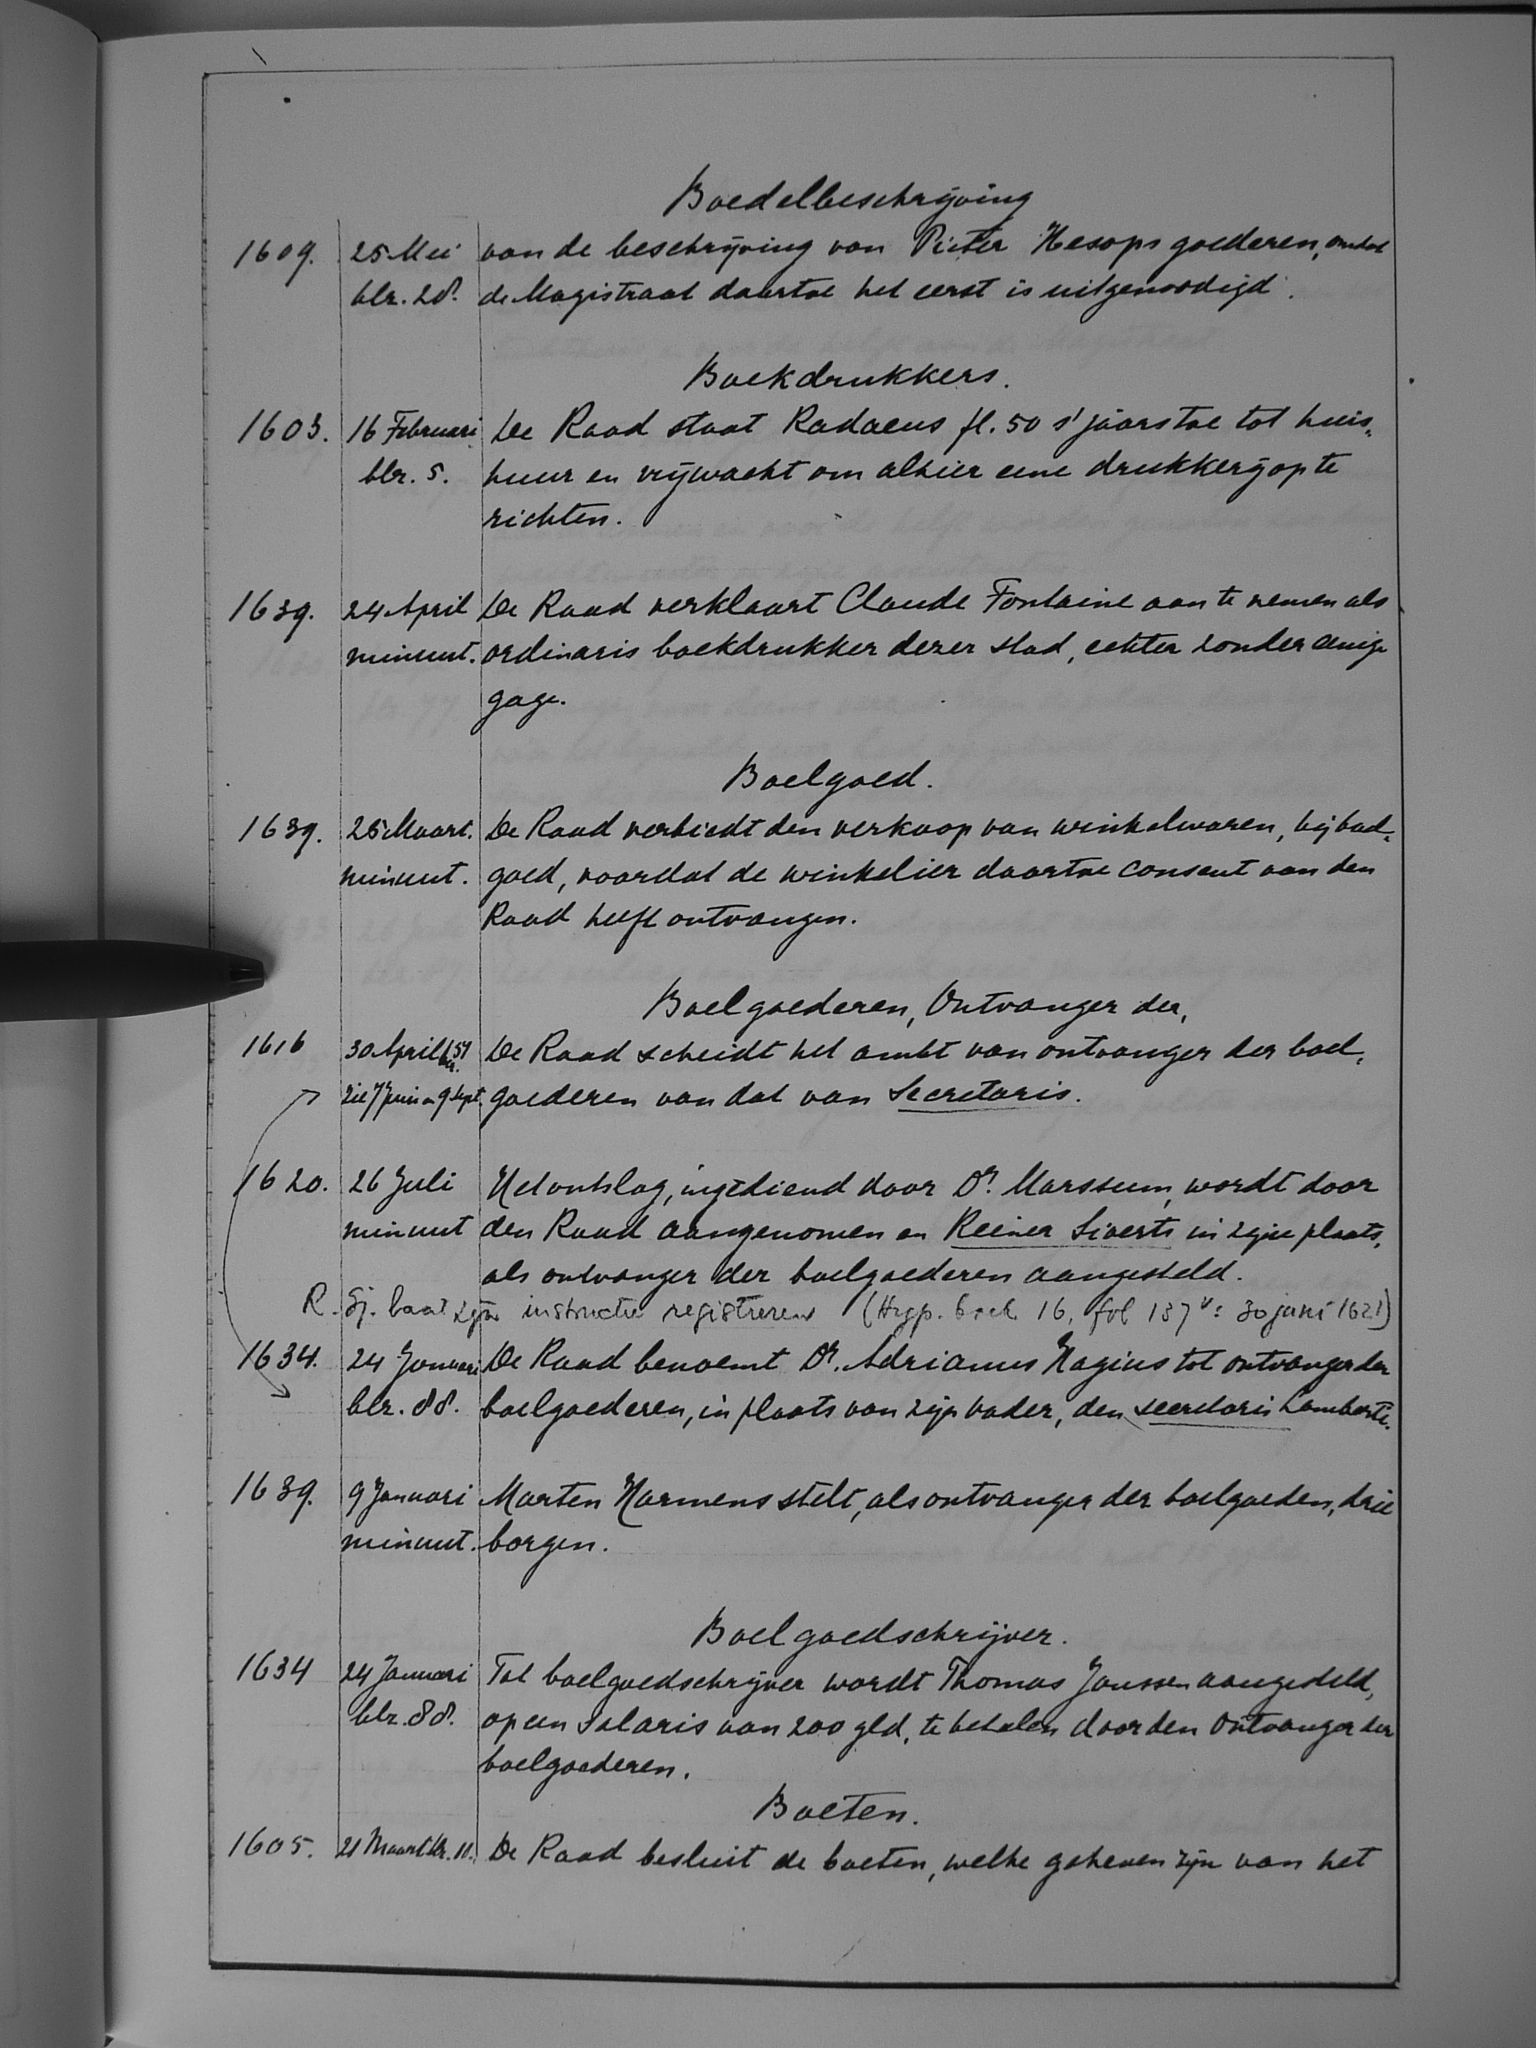 Boedelbeschrijving
1609. 25 Mei van de beschrijving van Pieter Hesops goederen, omdat
blz. 28. de Magistraat daartoe het eerst is uitgenoodigd.
Boekdrukkers.
1603. 16 Februari De Raad staat Radaeus fl. 50 s' jaars toe tot huis-
blz. 5. huur en vrijwacht om alhier eene drukkerij op te
richten.
1639. 24 April De Raad verklaart Claude Fontaine aan te nemen als
minuut. ordinaris boekdrukker dezer stad, echter zonder eenige
gage.
Boelgoed.
1639. 25 Maart. De Raad verbiedt den verkoop van winkelwaren, bij boel-
minuut. goed, voordat de winkelier daartoe consent van den
Raad heeft ontvangen.
Boelgoederen, Ontvanger der,
1616 30 April blz. 51 De Raad scheidt het ambt van ontvanger der boel-
zie 7 Juni en 9 Sept. goederen van dat van Secretaris.
1620. 26 Juli Het ontslag, ingediend door Dr. Marssum, wordt door
minuut den Raad aangenomen en Reiner Siverts in zijne plaats,
als ontvanger der boelgoederen aangesteld.
R. Sj. laat zijn instructie registreren (Hyp. boek 16, fol 137v: 30 juni 1621)
1634. 24 Januari De Raad benoemt Dr. Adrianus Hagius tot ontvanger der
blz. 88. boelgoederen, in plaats van zijn vader, den secretaris Lamberti.
1639. 9 Januari Marten Harmens stelt, als ontvanger der boelgoeden, drie
minuut. borgen.
Boelgoedschrijver.
1634 24 Januari Tot boelgoedschrijver wordt Thomas Janssen aangesteld,
blz. 88. op een salaris van 200 gld, te betalen door den Ontvanger der
boelgoederen.
Boeten.
1605. 21 Maart blz. 11. De Raad besluit de boeten, welke geheven zijn van het